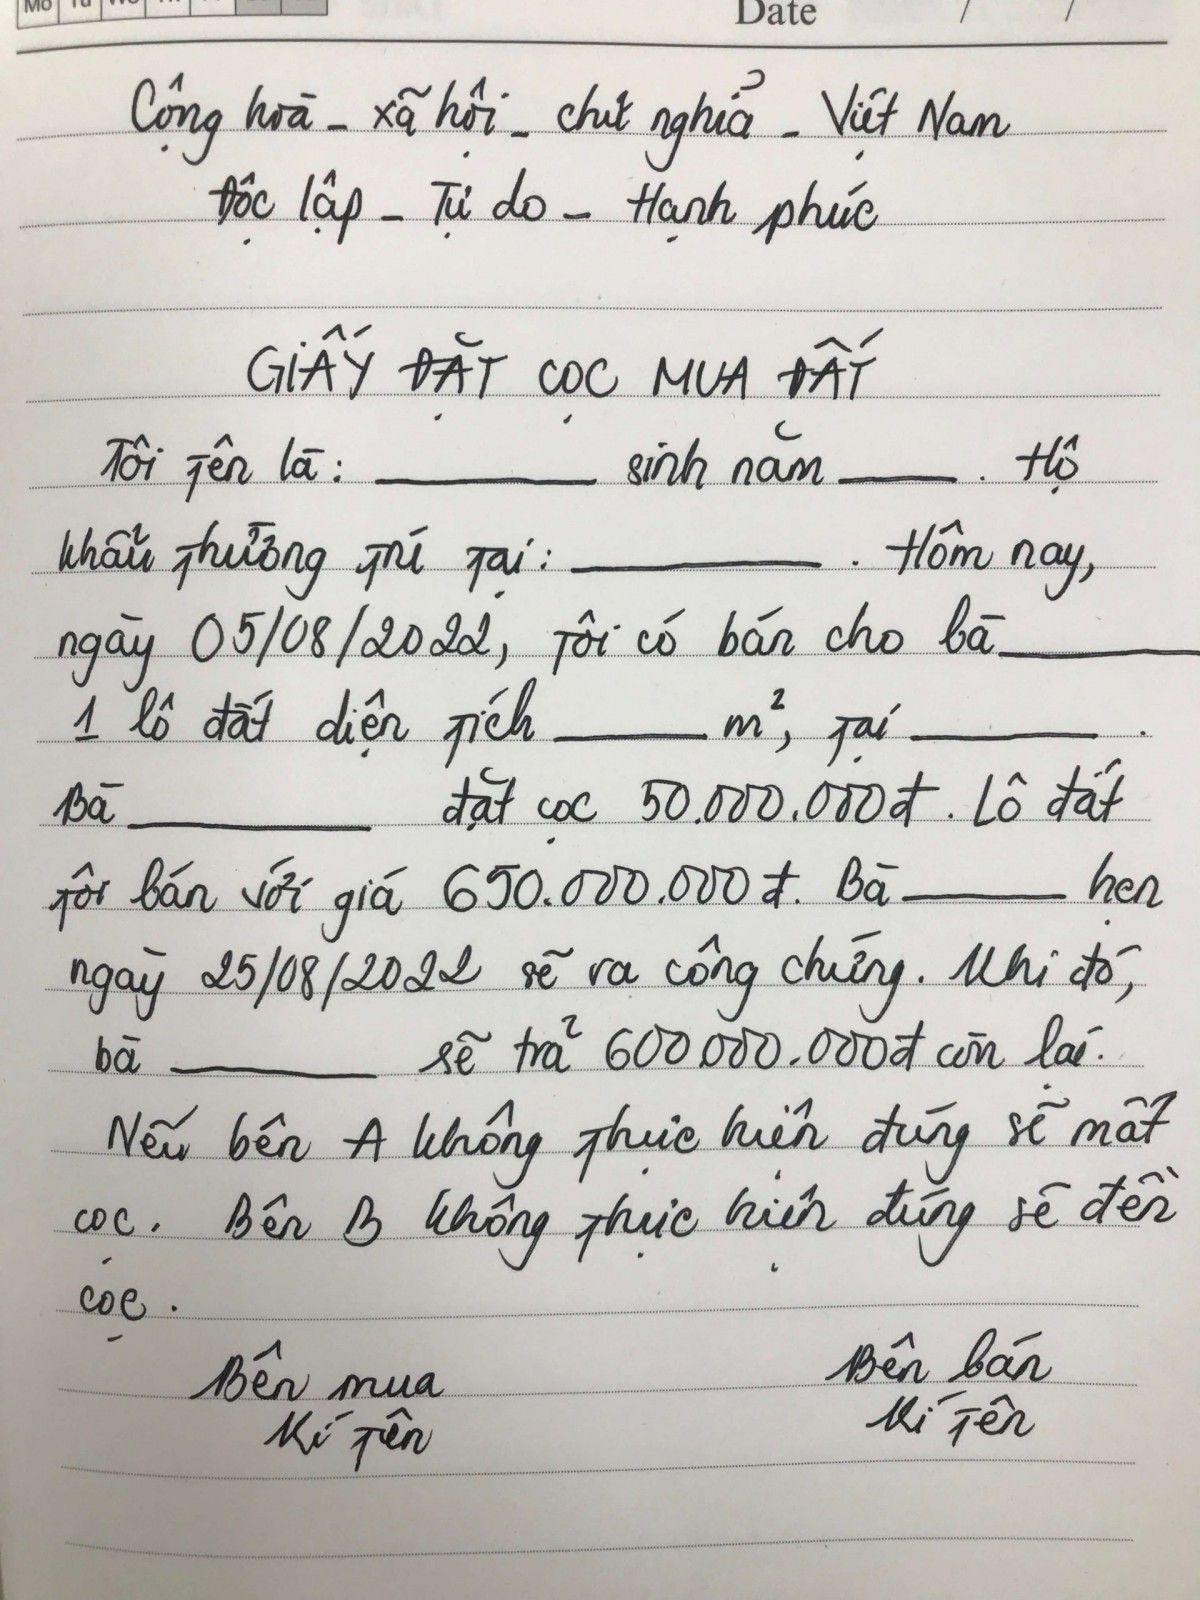 Mo Tu We Th Fr
Date / /
Cộng hoà - xã hội - chủ nghĩa - Việt Nam
Độc lập - Tự do - Hạnh phúc
GIẤY ĐẶT CỌC MUA ĐẤT
Tôi tên là: ______ sinh năm ____. Hộ
khẩu thường trú tại: ______. Hôm nay,
ngày 05/08/2022, tôi có bán cho bà ______
1 lô đất diện tích ______ m², tại ______.
Bà ______ đặt cọc 50.000.000đ. Lô đất
tôi bán với giá 650.000.000đ. Bà ______ hẹn
ngày 25/08/2022 sẽ ra công chứng. Khi đó,
bà ______ sẽ trả 600.000.000đ còn lại.
Nếu bên A không thực hiện đúng sẽ mất
cọc. Bên B không thực hiện đúng sẽ đền
cọc.
Bên mua Bên bán
Kí tên Kí tên